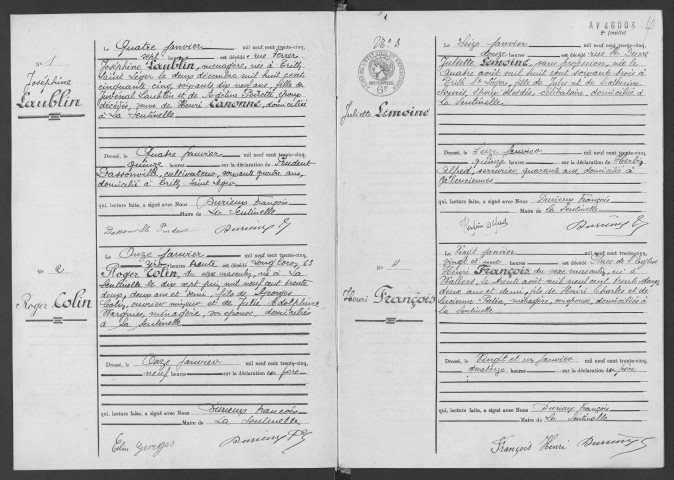 AV 46003
N° 1
Joséphine
Laublin
Le Quatre janvier mil neuf cent trente-cinq,
sept heures est décédée rue Ferrer
Joséphine Laublin, ménagère, née à Trith
Saint Léger le deux décembre mil huit cent
cinquante cinq, soixante dix neuf ans, fille de
Juvénal Laublin et de époux
décédés, veuve de Henri Canonne, domiciliée
à La Sentinelle
Dressé, le Quatre janvier mil neuf cent trente-cinq,
quinze heures sur la déclaration de Prudent
Dassonville, cultivateur, soixante quatre ans,
domicilié à Trith Saint Léger
qui, lecture faite, a signé avec Nous Durieux François
Maire de La Sentinelle
Dassonville Prudent
N° 2
Roger Colin
Le Onze janvier mil neuf cent trente-cinq,
heures trente
Roger Colin, du sexe masculin, né à La
Sentinelle le dix sept juin mil neuf cent trente
deux, deux ans et demi, fils de Georges
Colin, ouvrier mineur et de Julie Adolphine
Wargnies, ménagère, son épouse, domiciliés
à La Sentinelle
Dressé, le Onze janvier mil neuf cent trente-cinq,
neuf heures sur la déclaration du père
qui, lecture faite, a signé avec Nous Durieux François
Maire de La Sentinelle
Colin Georges
N° 3
Juliette Lemoine
Le Seize janvier mil neuf cent trente-cinq,
douze heures est décédée rue
Juliette Lemoine, sans profession, née le
Quatre août mil huit cent soixante trois à
Trith St Léger, fille de Jules et de Catherine
époux décédés, célibataire, domiciliée à
La Sentinelle
Dressé, le Seize janvier mil neuf cent trente-cinq,
quinze heures sur la déclaration de
Alfred, serrurier, quarante ans, domicilié à
Valenciennes
qui, lecture faite, a signé avec Nous Durieux François
Maire de La Sentinelle
N° 4
Henri François
Le Vingt janvier mil neuf cent trente-cinq,
vingt et une heures Place de l'Eglise
Henri François du sexe masculin, né à
Wallers, le trente août mil neuf cent trente deux,
deux ans et demi, fils de Henri Charles et de
Lucienne ménagère, son épouse, domiciliés à
La Sentinelle
Dressé, le Vingt et un janvier mil neuf cent trente-cinq,
quatorze heures sur la déclaration du père
qui, lecture faite, a signé avec Nous Durieux François
Maire de La Sentinelle
François Henri